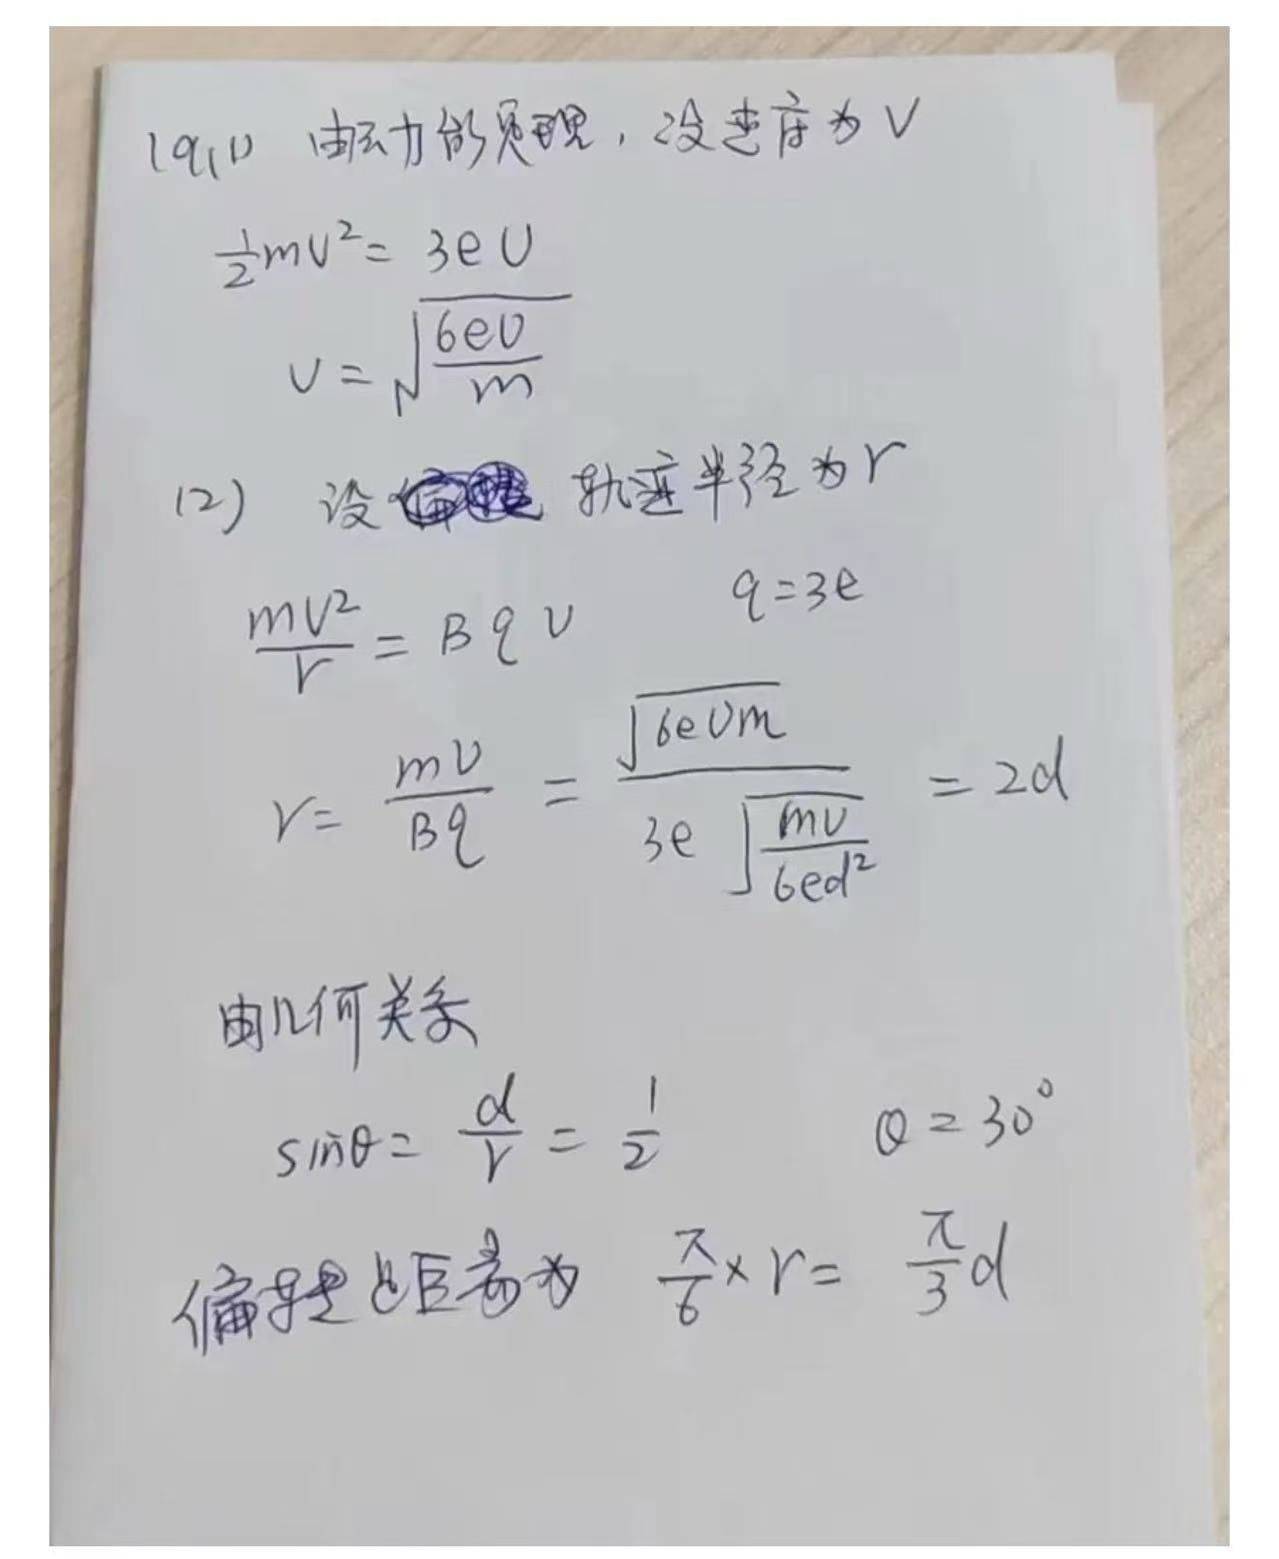 19,(1) 由动能原理,设速度为V
½mv²= 3eU
v=√(6eU/m)
(2) 设 轨迹半径为r
mv²/r = Bqv q=3e
r= mv/Bq = √(6eUm)/(3e√(mU/6ed²)) =2d
由几何关系
sinθ= d/r = 1/2 θ=30°
偏转距离为 π/6×r= π/3d